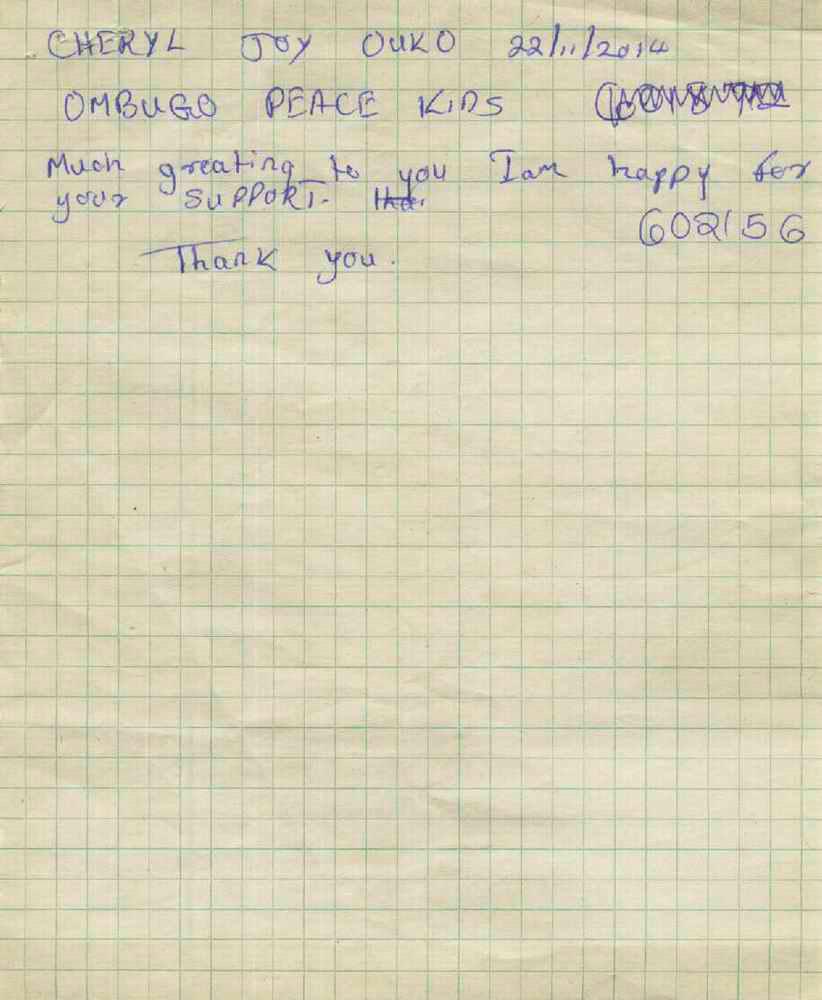 CHERYL JOY OUKO 22/11/2014
OMBUGO PEACE KIDS
Much greating to you I am happy for
your SUPPORT.
602156
Thank you.